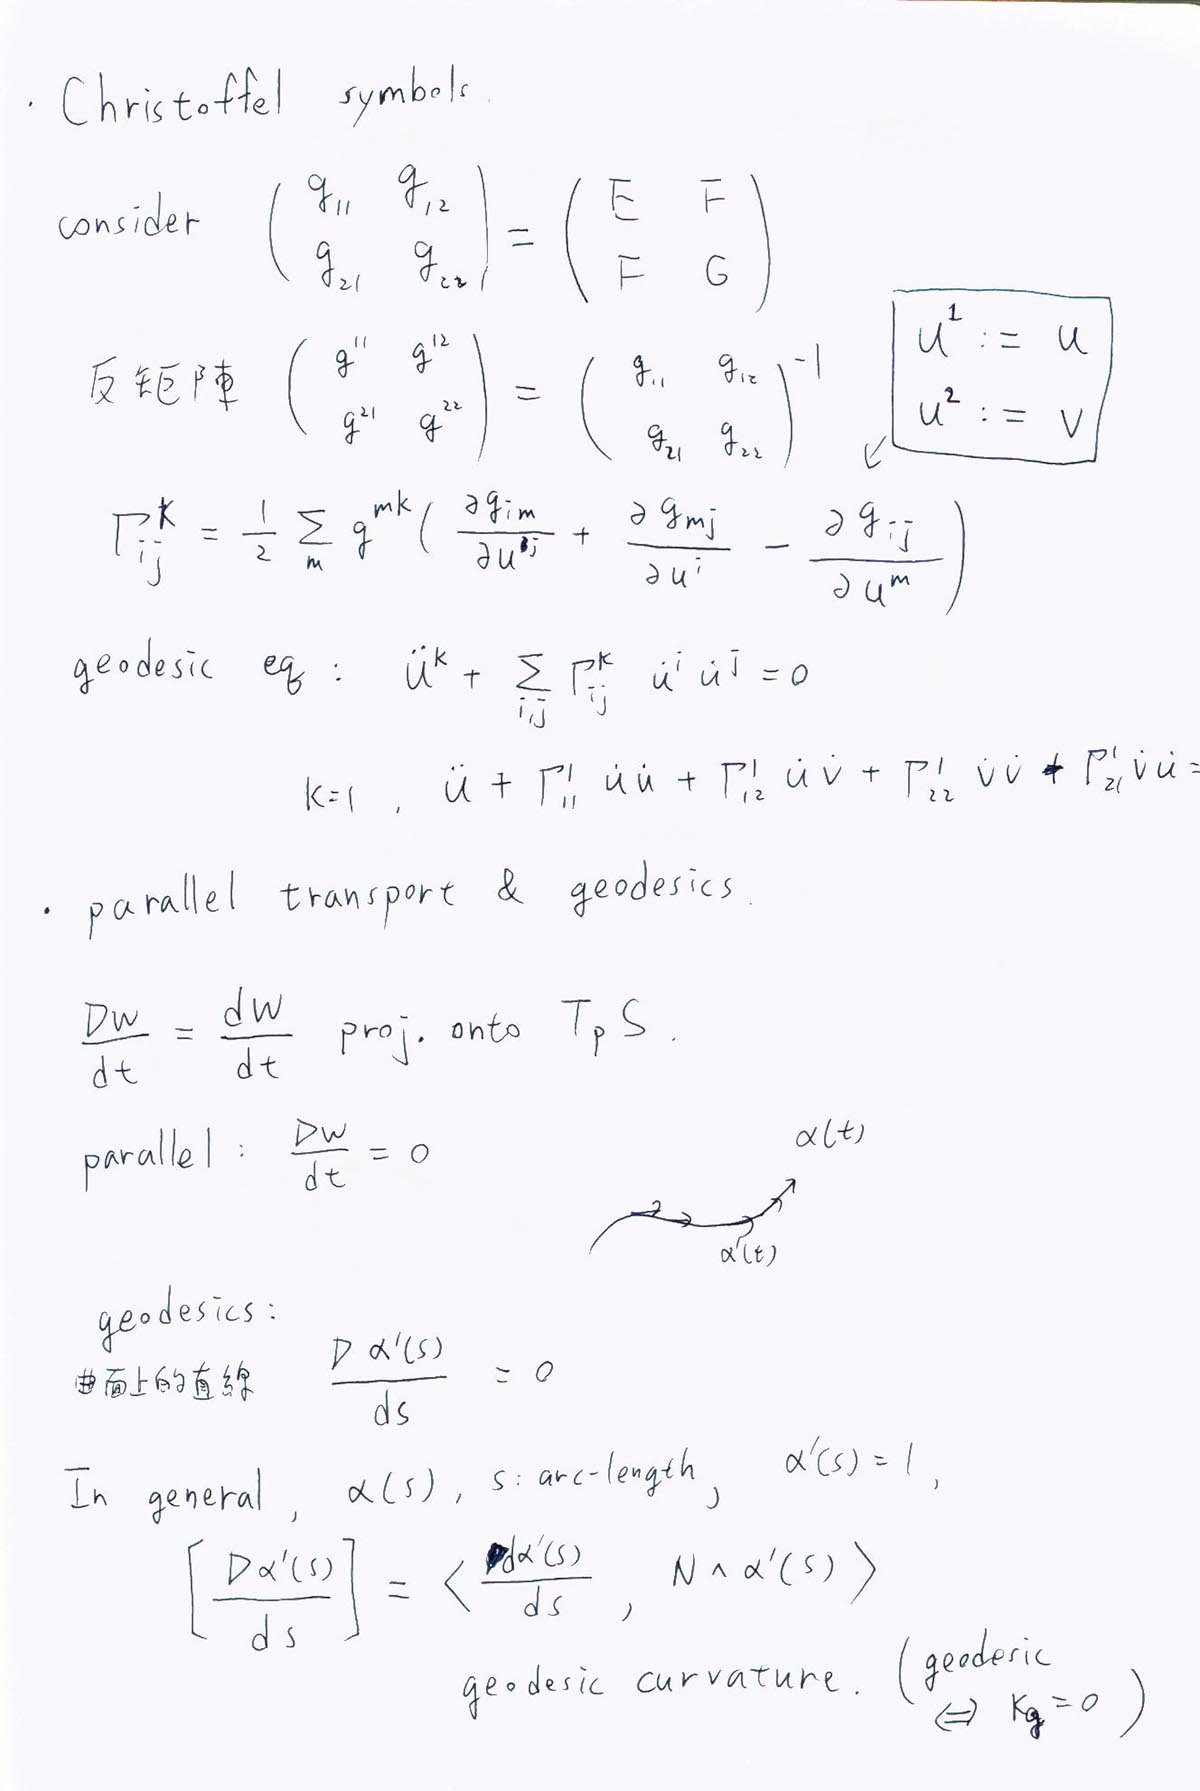 · Christoffel symbols.
consider ( g₁₁ g₁₂ ; g₂₁ g₂₂ ) = ( E F ; F G )
u¹ := u
u² := v
反矩陣 ( g¹¹ g¹² ; g²¹ g²² ) = ( g₁₁ g₁₂ ; g₂₁ g₂₂ )⁻¹
Γ_{ij}^k = 1/2 Σ_m g^{mk} ( ∂g_{im}/∂u^j + ∂g_{mj}/∂u^i − ∂g_{ij}/∂u^m )
geodesic eq : ü^k + Σ_{i,j} Γ_{ij}^k u̇^i u̇^j = 0
k=1 , ü + Γ₁₁¹ u̇u̇ + Γ₁₂¹ u̇v̇ + Γ₂₂¹ v̇v̇ + Γ₂₁¹ v̇u̇ =
· parallel transport & geodesics.
Dw/dt = dw/dt proj. onto T_p S.
parallel : Dw/dt = 0
α(t)
α'(t)
geodesics :
曲面上的直線 Dα'(s)/ds = 0
In general , α(s) , s : arc-length, α'(s) = 1 ,
[ Dα'(s)/ds ] = ⟨ dα'(s)/ds , N ∧ α'(s) ⟩
geodesic curvature. ( geodesic
⇔ Kg = 0 )